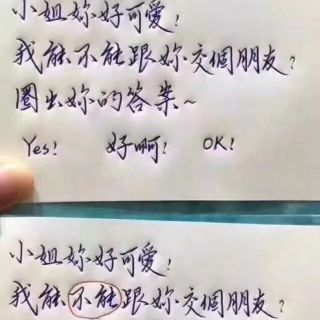 小姐妳好可愛!
我能不能跟妳交個朋友?
圈出妳的答案~
Yes! 好啊! OK!
小姐妳好可愛!
我能不能跟妳交個朋友?